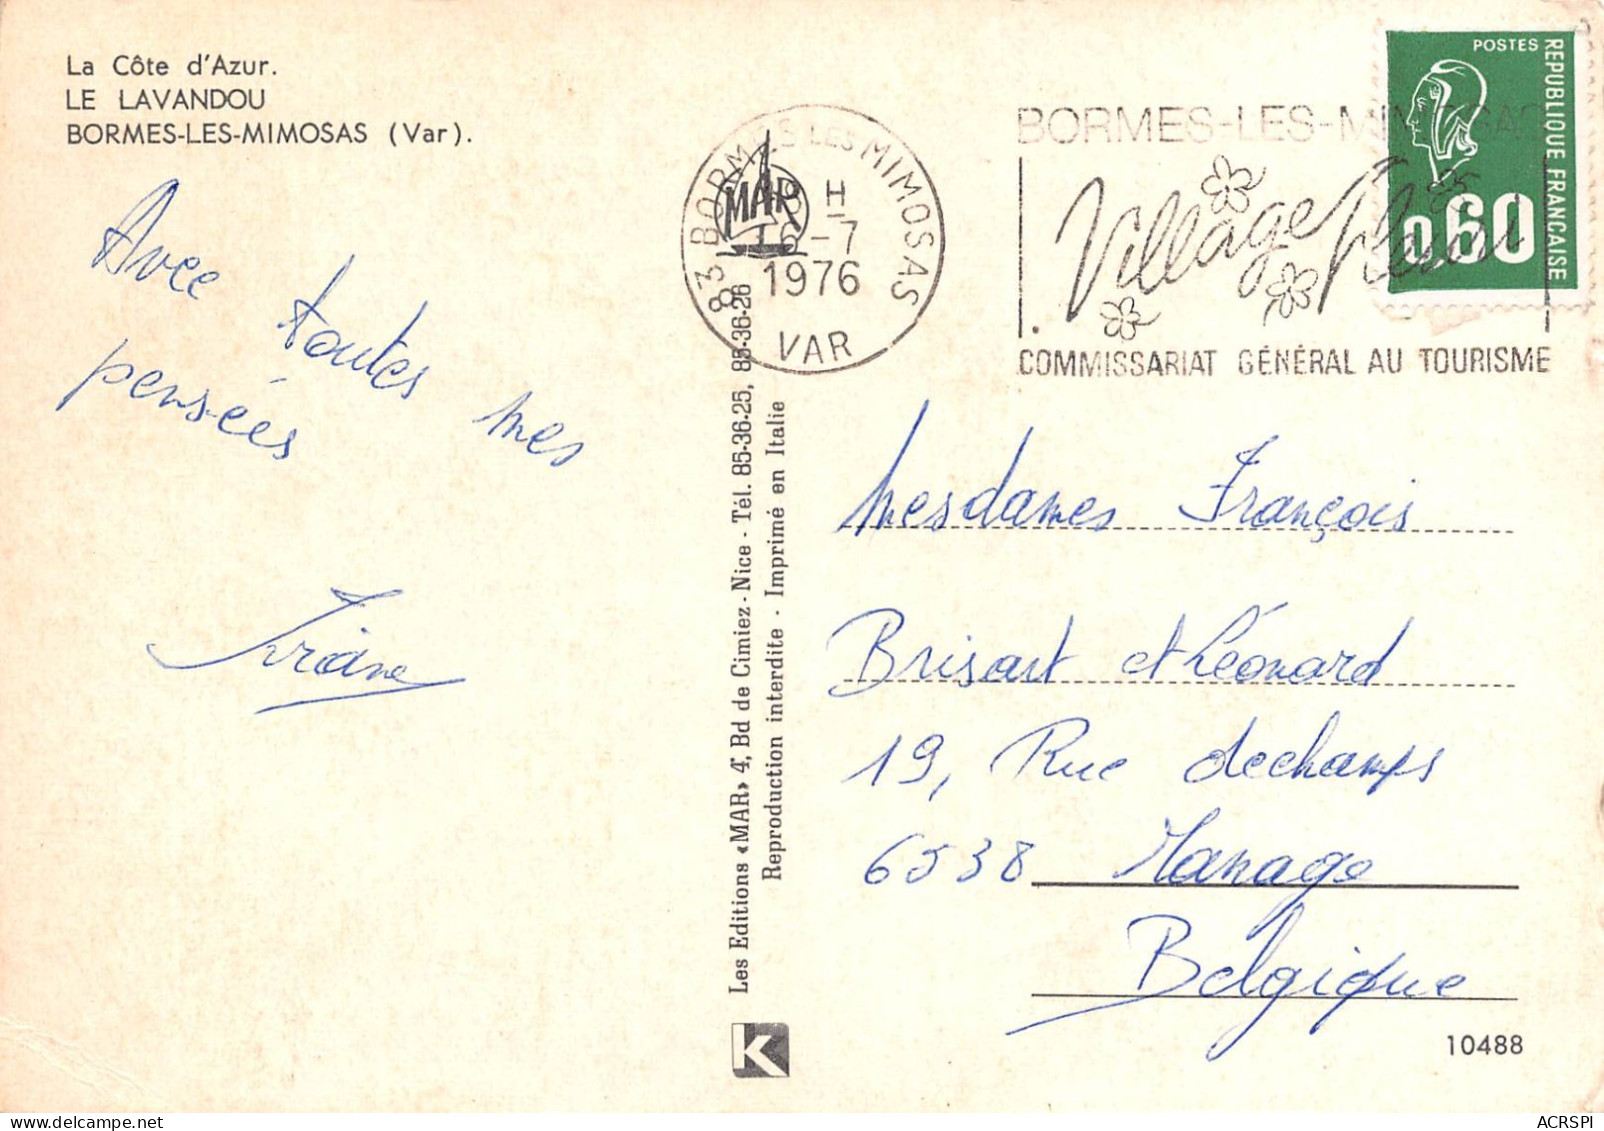 La Côte d'Azur.
LE LAVANDOU
BORMES-LES-MIMOSAS (Var).
Avec toutes mes
pensées
83 BORMES LES MIMOSAS
H
6-7
1976
VAR
MAR
BORMES-LES-MIMOSAS
Village Fleuri
COMMISSARIAT GÉNÉRAL AU TOURISME
POSTES
REPUBLIQUE FRANCAISE
0,60
Les Editions «MAR» 4, Bd de Cimiez - Nice - Tél. 85-36-25, 85-36-26
Reproduction interdite - Imprimé en Italie
Mesdames François
Brisart et Léonard
19, Rue dechamps
6538 Manage
Belgique
K
10488
ACRSPI